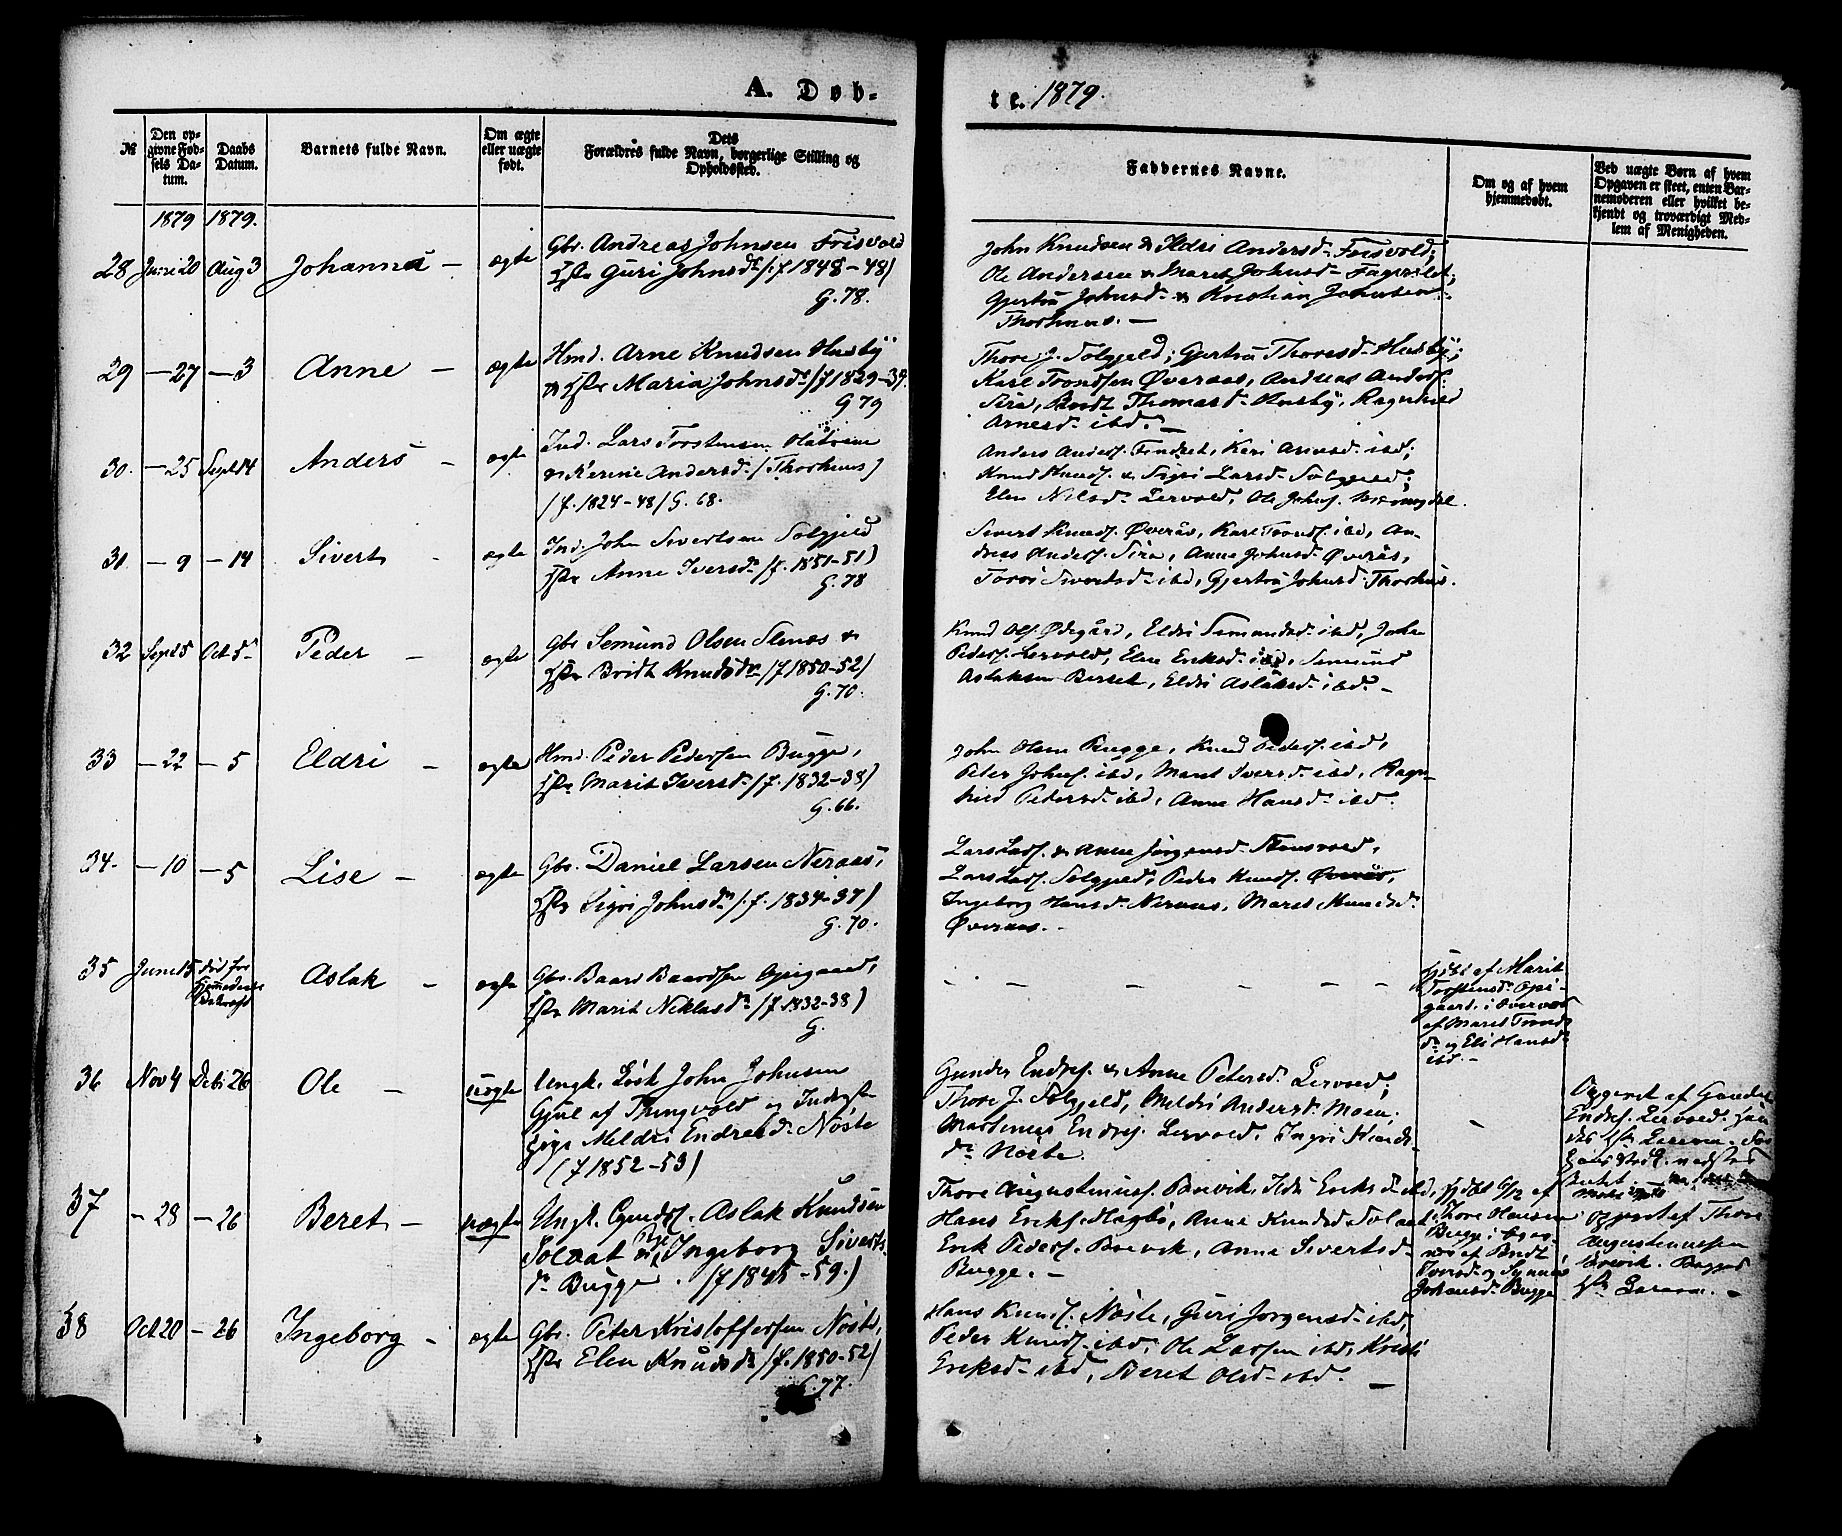 A. Døb-
te. 1879.
№
Den opgivne Fødsels Datum.
Daabs Datum.
Barnets fulde Navn.
Om ægte eller uægte født.
Dets Forældres fulde Navn, borgerlige Stilling og Opholdssted.
Faddernes Navne.
Om og af hvem hjemmedøbt.
Ved uægte Børn af hvem Opgaven er skeet, enten Barnemoderen eller hvilket bekjendt og troværdigt Medlem af Menigheden.
1879 1879.
28 Juni 20 Aug 3 Johanna - ægte
Gbr. Andreas Johnsen Frisvold
Hstr Guri Johnsdr (f. 1848-48)
G. 78.
John Knudsen & Ildri Andersd. Frisvold;
Ole Andersen & Marit Johnsd.
Gjertru Johnsd. & Kristian Johnsen
Thorhuus. -
29 - 27 - 3 Anne - ægte
Hmd. Arne Knudsen Husby
& Hstr Maria Johnsdr (f 1829-39.
G 79
Thore J. Solgjeld; Gjertru Thoresd. Husby;
Karl Trondsen Øveraas, Andreas Anders.
Sira, Brodt Thomasd. Husby, Ragnhild
Arnesd. ibd. -
30. - 25 Sept 14 Anders - ægte
Ind. Lars Torstensen
& Kerine Andersd. (Thorhuus)
(f. 1824-48) G. 68.
Anders Anders. Tindset, Kari Arnesd. ibd;
Knud Knuds. & Sigri Larsd. Solgjeld;
Elen Nilsd. Lervold, Ole Johns.
31 - 9 - 14 Sivert - ægte
Ind. John Sivertsen Solgjeld
Hstr Anne Iversdr (f. 1851-51)
G. 78
Sivert Knuds. Øveraas, Karl Tronds. ibd, An-
dreas Anders. Sira, Anne Johnsd. Øveraas,
Sivertsd. ibd, Gjertru Johnsd. Thorhuus.
32 Sept 5 Oct 5 Peder - ægte
Gbr Semund Olsen Stenes &
Hstr Bridt Knudsdr (f 1850-52)
G. 70.
Knud Ols. Ødegård, Eldri Semundsd. ibd, John
Peders. Lervold, Elen Eriksd. ibd, Semund
Aslaksen Berset, Eldri Aslaksd. ibd. -
33 - 22 - 5 Eldri - ægte
Hmd. Peder Pedersen Bugge,
Hstr Marit Iversd. (f. 1832-38)
G. 66.
John Olsen Bugge, Knud Peders. ibd,
Peter Johns. ibd, Marit Iversd. ibd, Ragn-
hild Pedersd. ibd, Anne Hansd. ibd.
34. - 10 - 5 Lise - ægte
Gbr. Daniel Larsen Neraas,
Hstr Sigri Johnsdr (f. 1834-37)
G. 70.
Lars Lars. & Anne Jørgensd.
Lars Lars. Solgjeld, Peder Knuds. Øveraas,
Ingeborg Hansd. Neraas, Marit Knudsd.
Øveraas. -
35 Juni 15 død før Aslak - ægte
Gbr. Baard Baardsen Opigaard,
Hstr Marit Niklasdr (f. 1832-38)
G.
- - - - - -
Hjdbt af Marit
Torstensd. Opi-
gaard, i Overvær
af Marit Trond
dr og Eli Hansd.
ibd. -
36 Nov 4 Debr 26 Ole - uægte
Ungk. Løsk John Johnsen
Gjul af Thingvold og Inderste
pige Meldri Endresd. Nøste
(f 1852-53)
Gunder Endres. & Anne Petersd. Lervold;
Thore J. Solgjeld, Meldri Andersd. Moen;
Martinus Endres. Lervold, Ingri Knuds-
dr Nøste.
-
Opgivet af Gunder
Endres. Lervold.
37 - 28 - 26 Beret - uægte
Ungk. Aslak Knudsen
Soldat og Pige Ingeborg Siverts-
dr Bugge. (f 1845-59.)
Thore Augustinus. Brevik, Ildri Eriksd. ibd,
Hans Eriks. Hagbø, Anne Knudsd.
Erik Peders. Brevik, Anne Sivertsd.
Bugge. -
Hjdbt 6/12 af
Thore Hansen
Bugge i Over-
vær af Brodt
Iversd. og Synnøve
Johansd. Bugge
Opgivet af Thore
Augustinussen
Brevik.
38 Oct 20 - 26 Ingeborg - ægte
Gbr. Peter Kristoffersen Nøste,
Hstr Elen Knudsdr (f. 1850-52)
G. 77.
Hans Knuds. Nøste, Guri Jørgensd. ibd,
Peder Knuds. ibd, Ole Larsen ibd, Kristi
Eriksd. ibd, Beret Olsd. ibd. -